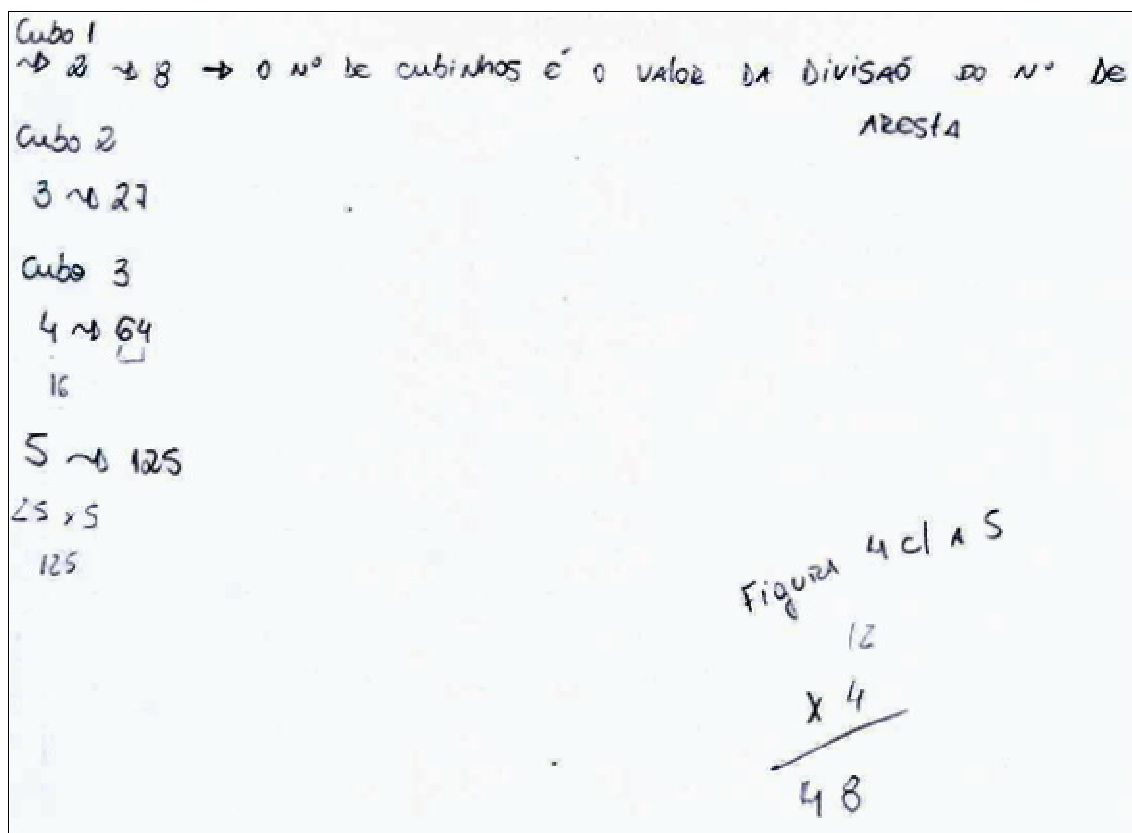 Cubo 1
~> 2 ~> 8 → O Nº de cubinhos é o valor da divisaõ do Nº de
aresta
Cubo 2
3 ~> 27
Cubo 3
4 ~> 64
16
5 ~> 125
25 x 5
125
Figura 4 c/ A 5
12
x 4
48